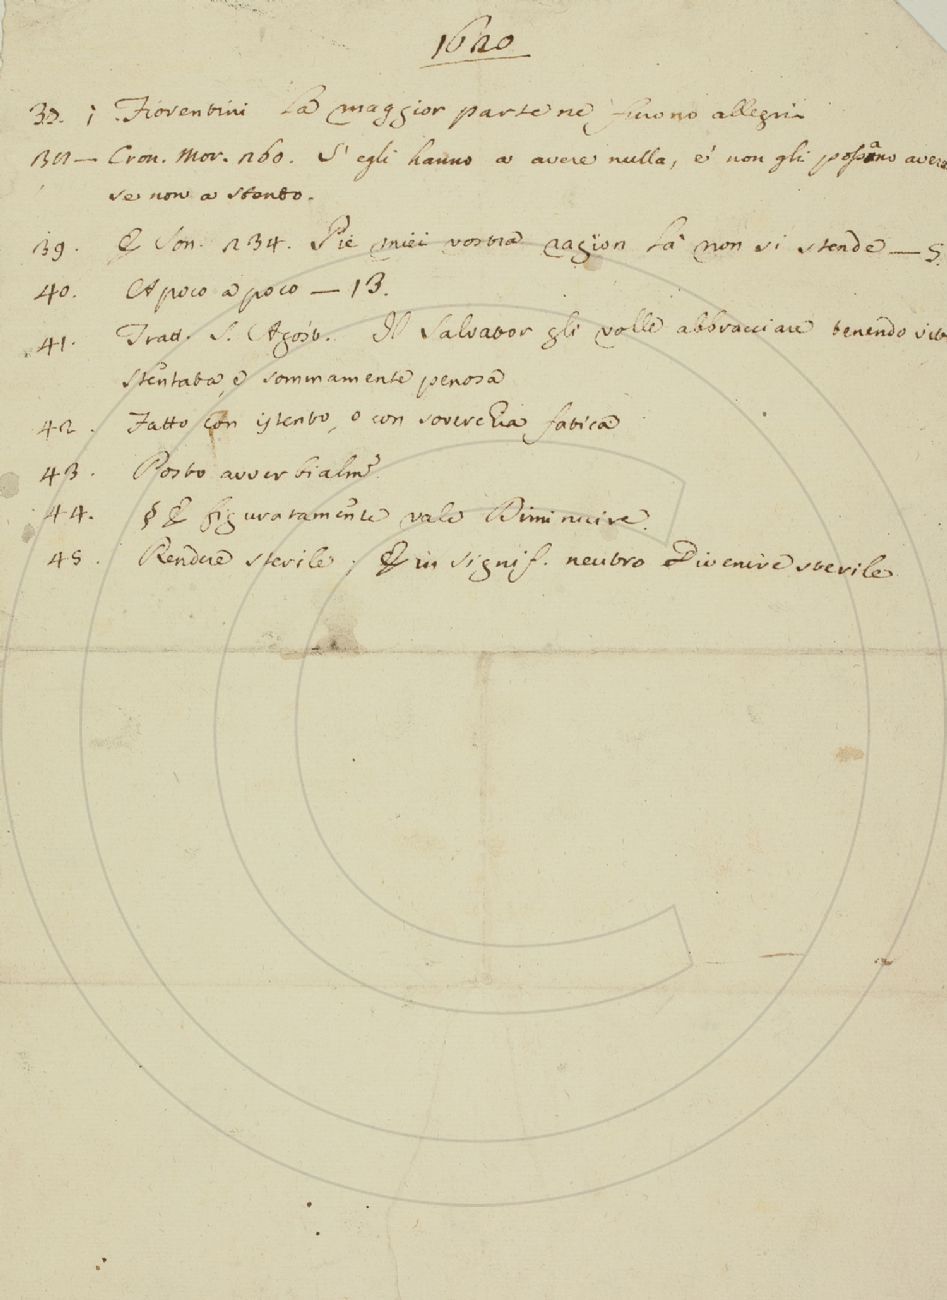 1620
i Fiorentini la maggior parte ne furono allegri.
Cron. Mor. 260. S'egli hanno a avere nulla, e' non gli possano avere
se non a stento.
39. E Son. 234. Piè miei vostra ragion là non si stende — 5.
40. A poco a poco — 13.
41. Tratt. S. Agost. Il Salvator gli volle abbracciare tenendo vita
stentata, e sommamente penosa
42. Fatto con istento, o con soverchia fatica
43. Posto avverbialm.e
44. § E figuratamente vale Diminuire.
45. Rendere sterile; E in signif. neutro Divenire sterile